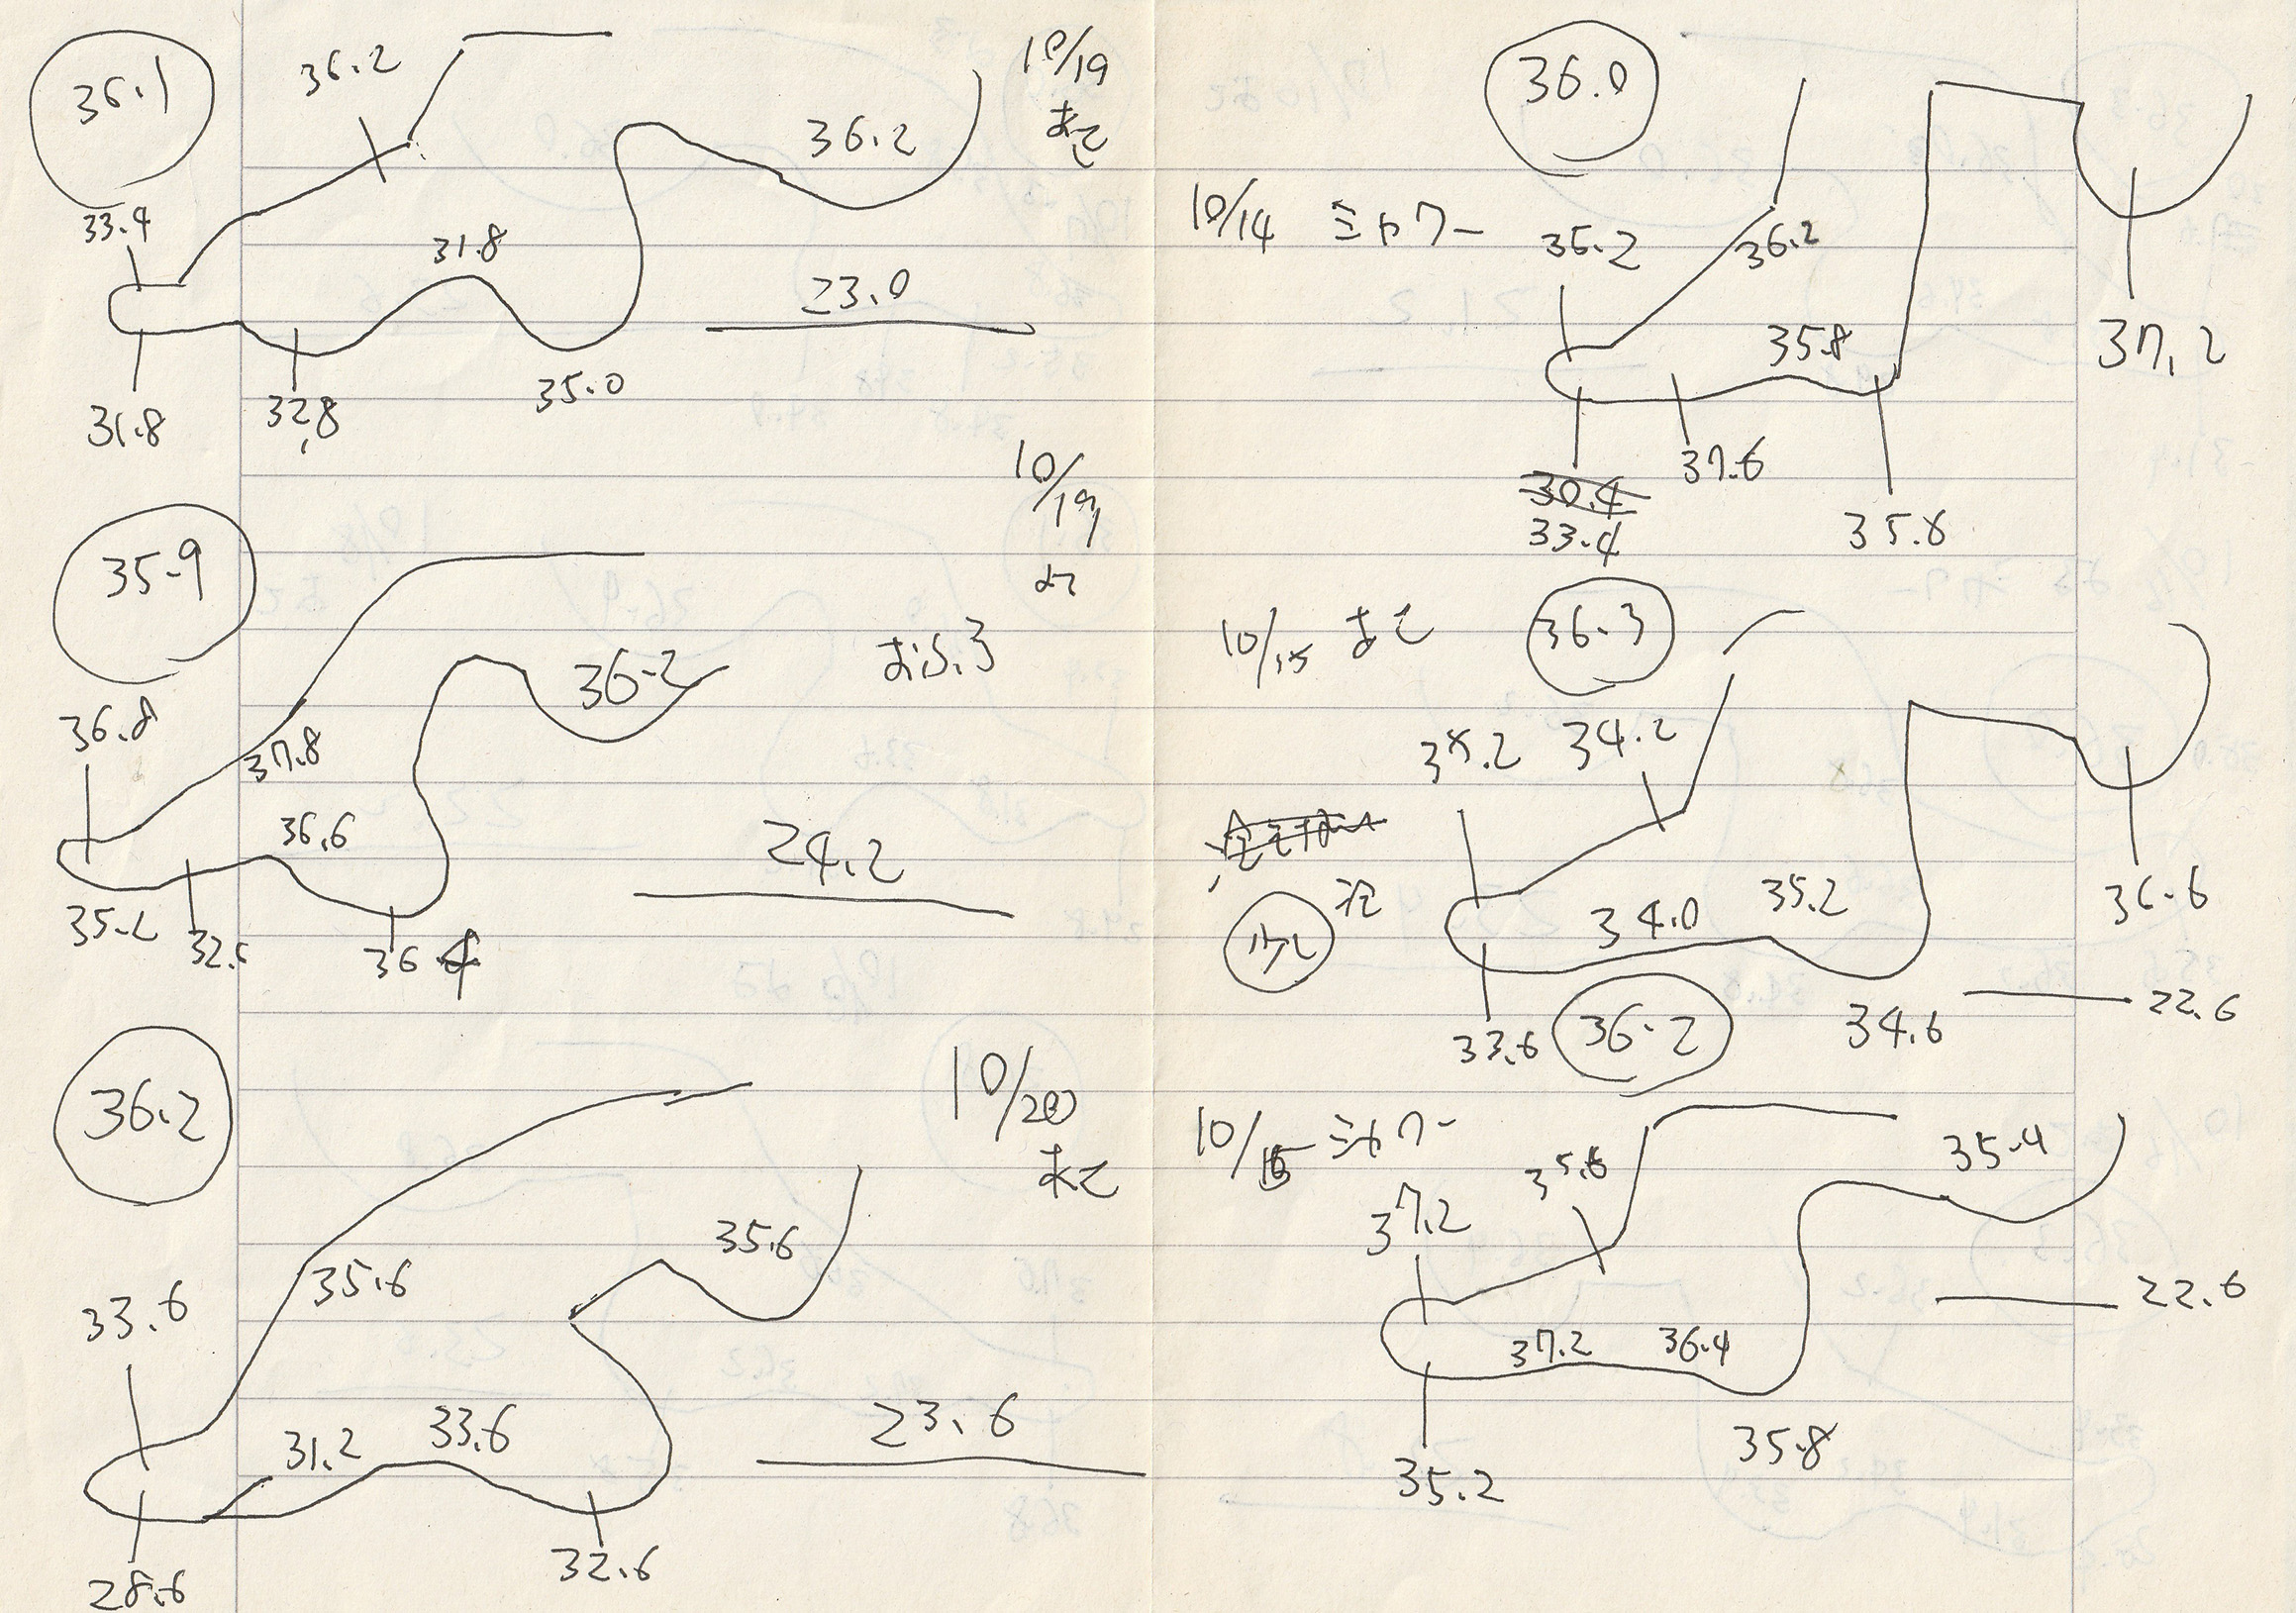 36.1
36.2
10/19
あさ
36.2
33.4
31.8
23.0
31.8
32.8
35.0
10/19
よる
35.9
おふろ
36.2
36.8
37.8
36.6
24.2
35.2
32.6
36.4
36.2
10/20
あさ
35.6
35.6
33.6
31.2
33.6
23.6
28.6
32.6
36.0
10/14 シャワー
36.2
36.2
35.8
37.2
37.6
30.4
33.4
35.8
10/15 あさ
36.3
35.2
34.2
34.0
35.2
36.6
22.6
33.6
36.2
34.6
10/15 シャワー
35.6
35.4
37.2
22.6
37.2
36.4
35.2
35.8